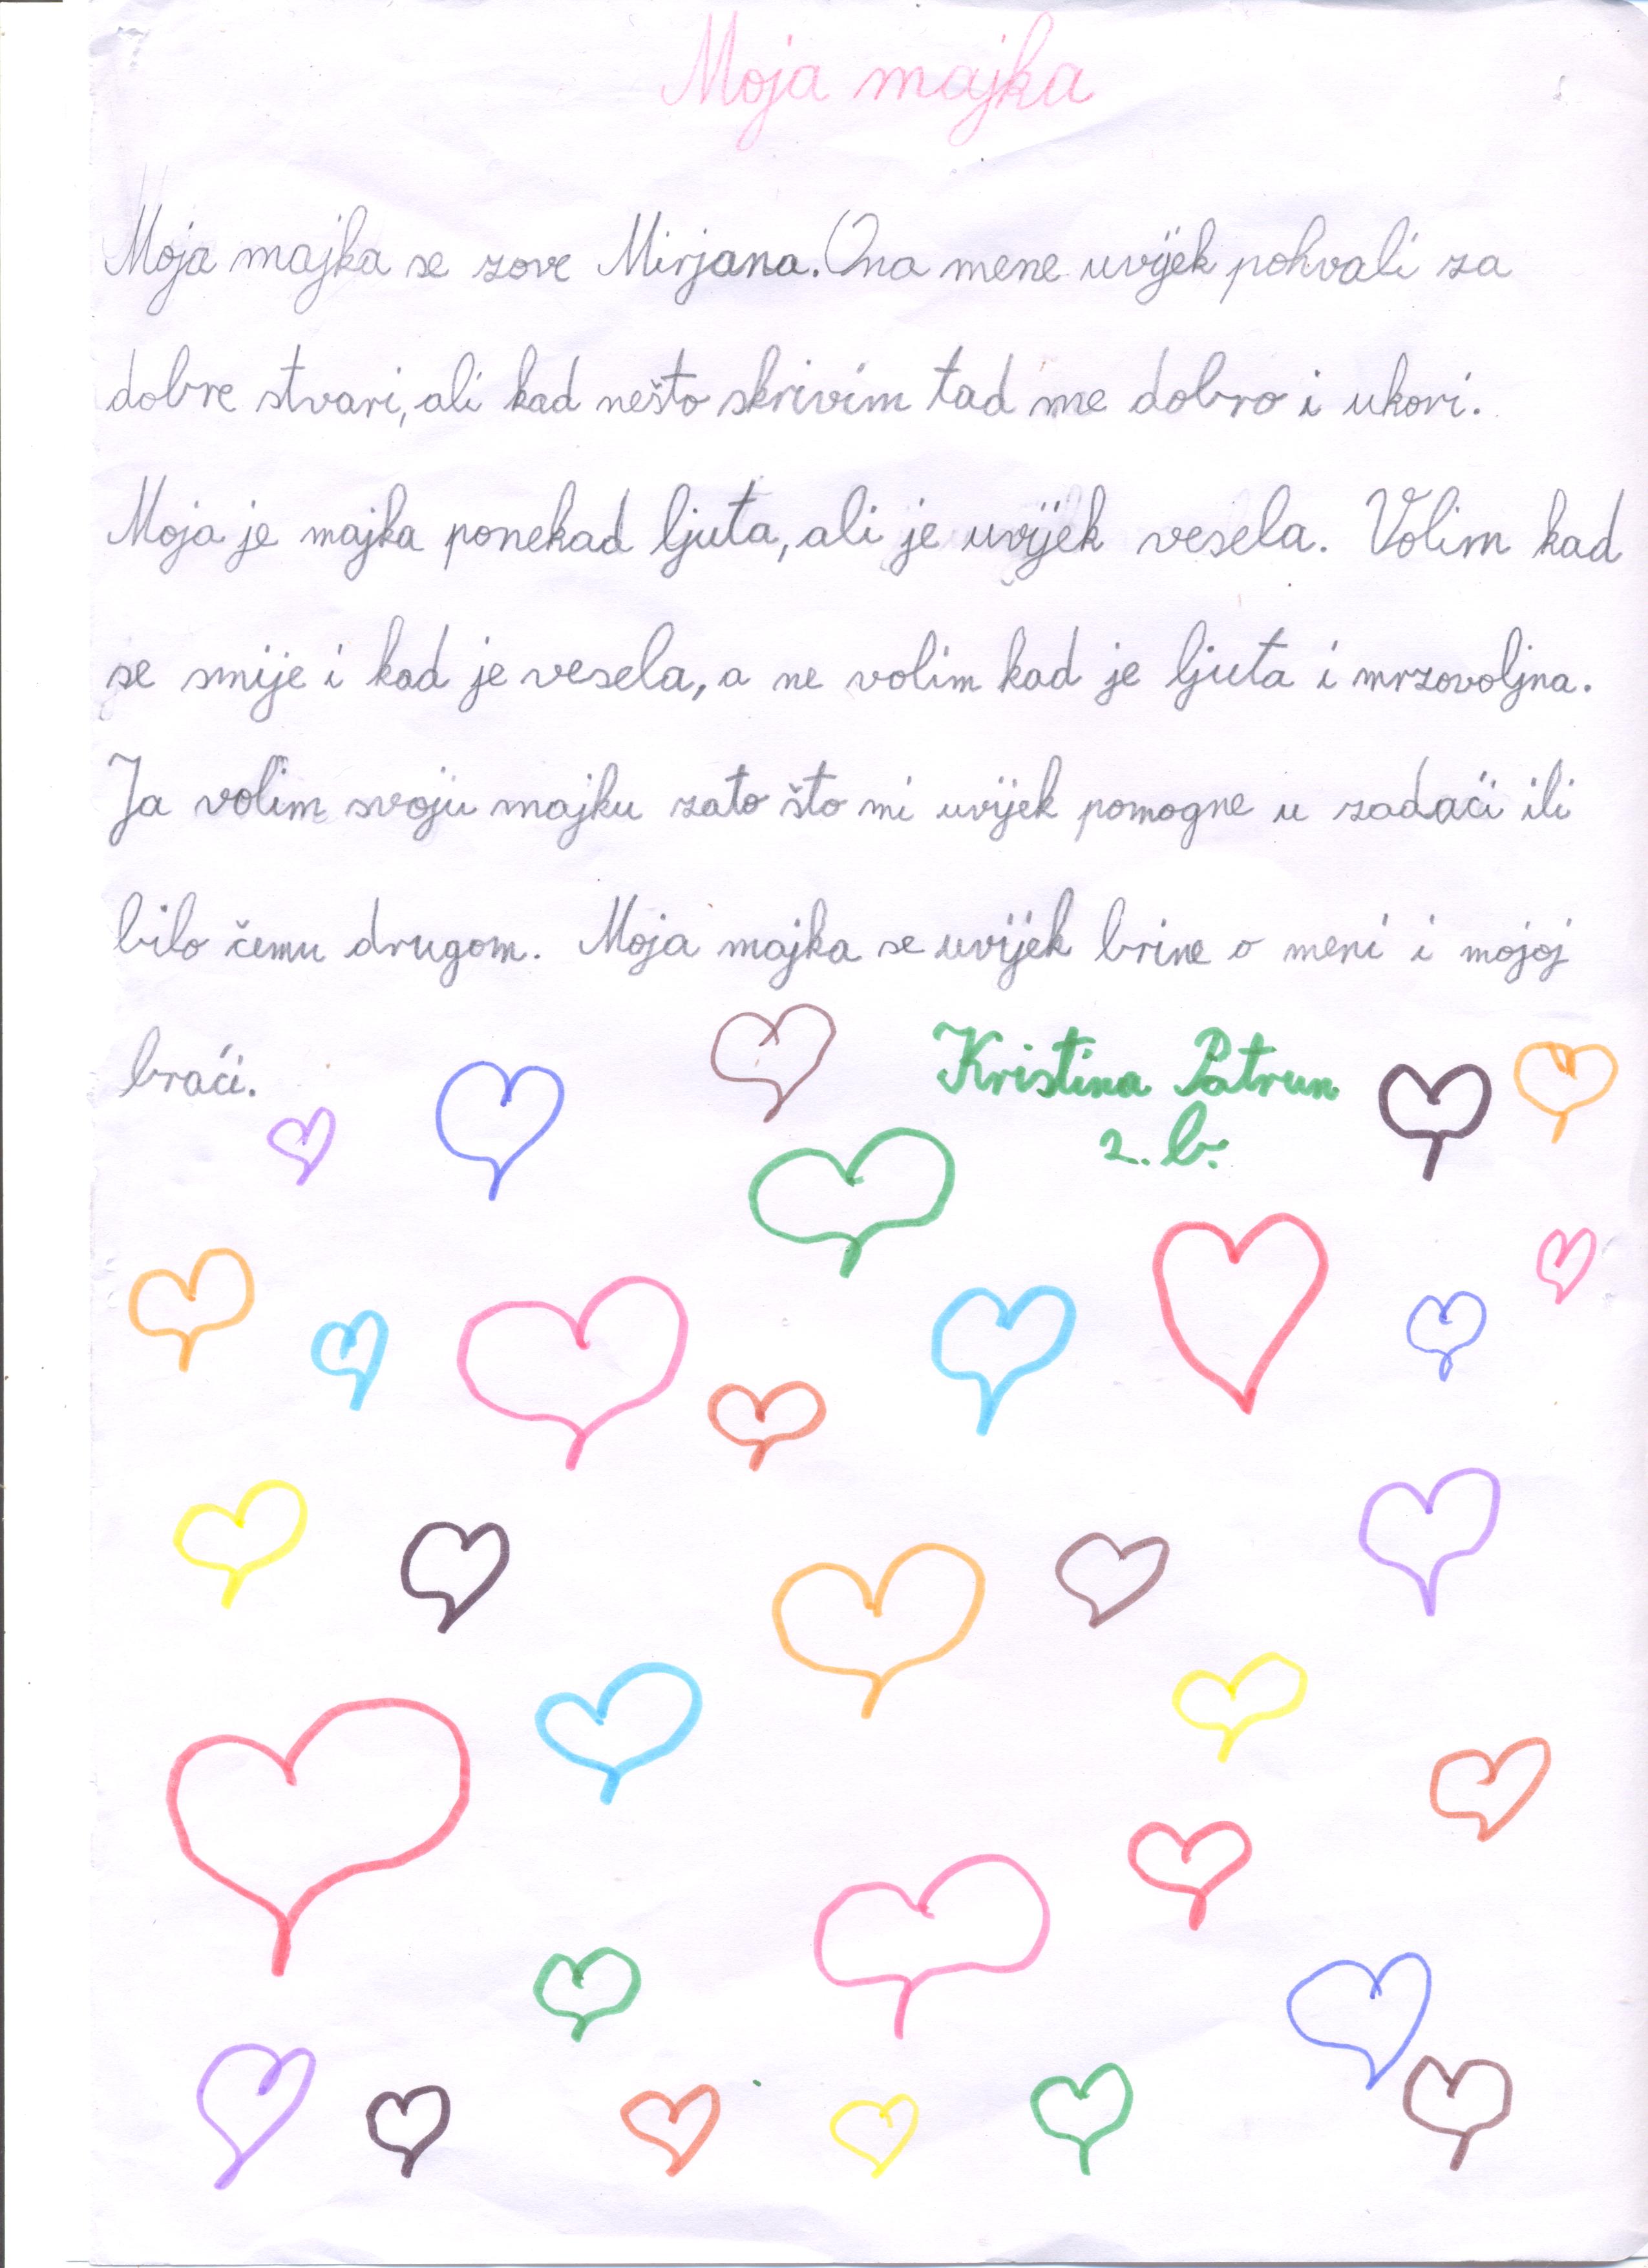 Moja majka
Moja majka se zove Mirjana. Ona mene uvijek pohvali za
dobre stvari, ali kad nešto skrivim tad me dobro i ukori.
Moja je majka ponekad ljuta, ali je uvijek vesela. Volim kad
se smije i kad je vesela, a ne volim kad je ljuta i mrzovoljna.
Ja volim svoju majku zato što mi uvijek pomogne u zadaći ili
bilo čemu drugom. Moja majka se uvijek brine o meni i mojoj
braći.
Kristina Patrun
2. b.